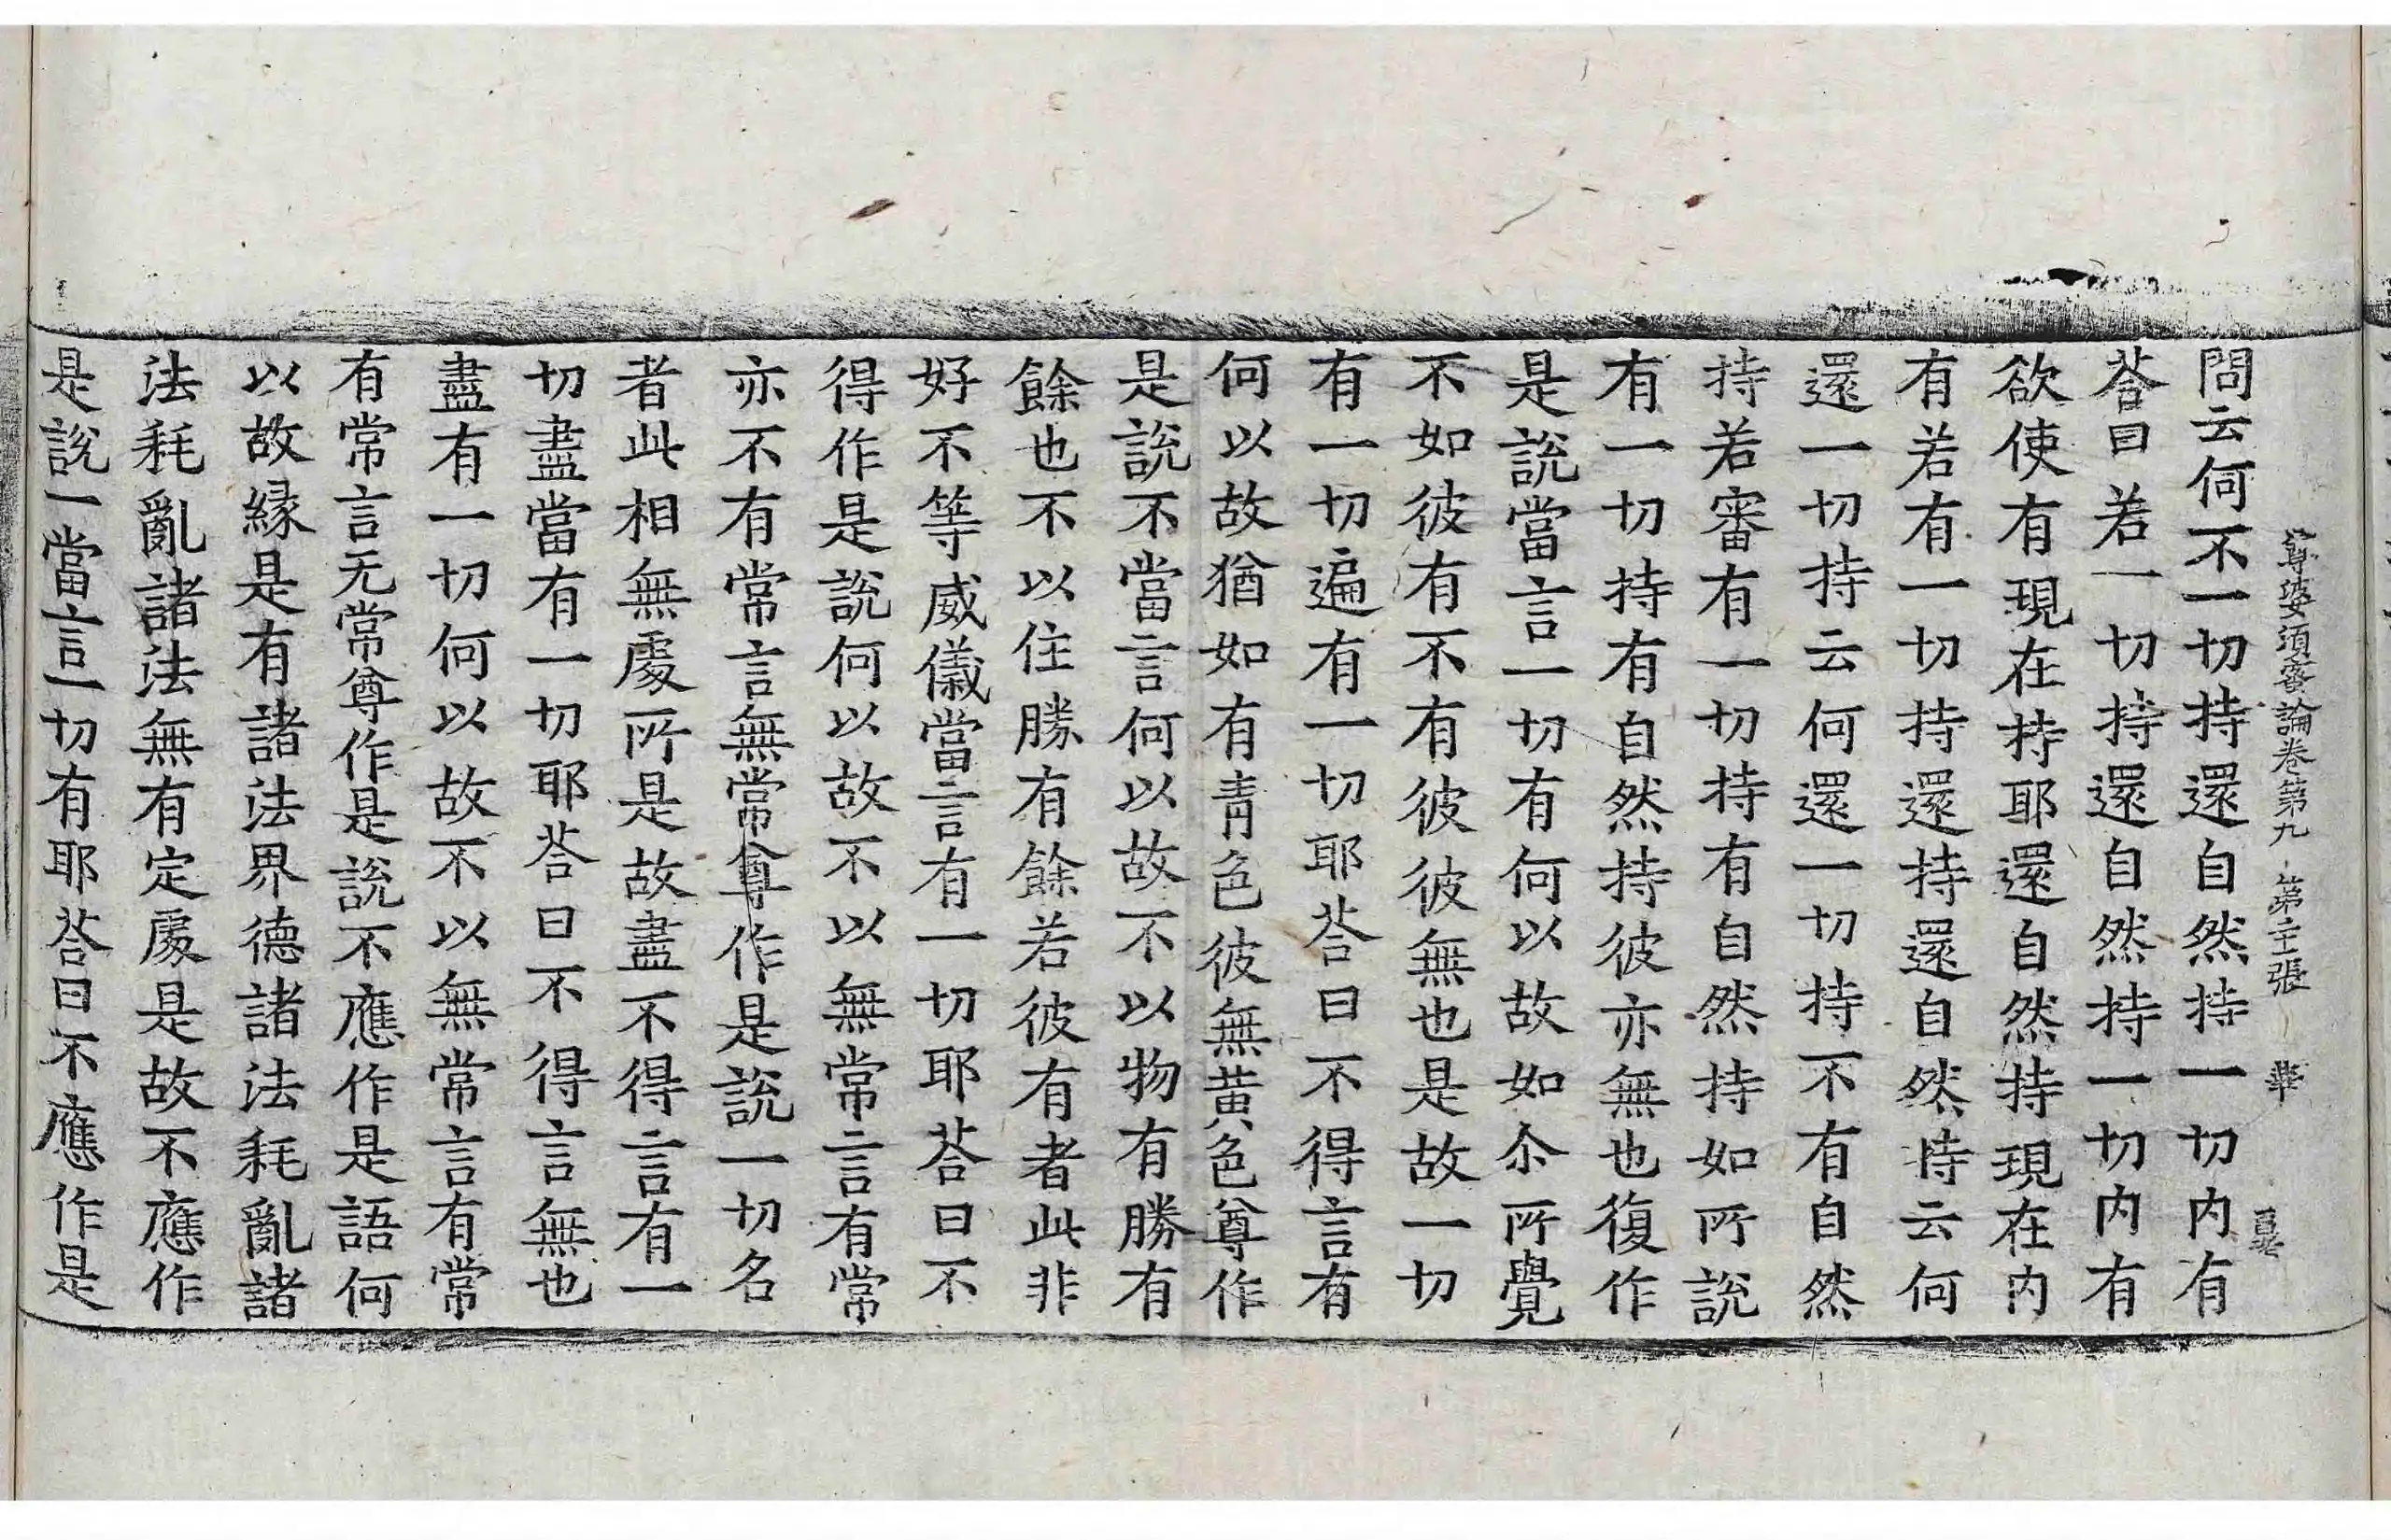 尊婆須蜜論卷第九 第十二張 華
問云何不一切持還自然持一切内有
荅曰若一切持還自然持一切内有
欲使有現在持耶還自然持現在内
有若有一切持還持還自然持云何
還一切持云何還一切持不有自然
持若審有一切持有自然持如所說
有一切持有自然持彼亦無也復作
是說當言一切有何以故如尒所覺
不如彼有不有彼彼無也是故一切
有一切遍有一切耶荅曰不得言有
何以故猶如有青色彼無黃色尊作
是說不當言何以故不以物有勝有
餘也不以住勝有餘若彼有者此非
好不等威儀當言有一切耶荅曰不
得作是說何以故不以無常言有常
亦不有常言無常尊作是說一切名
者此相無處所是故盡不得言有一
切盡當有一切耶荅曰不得言無也
盡有一切何以故不以無常言有常
有常言无常尊作是說不應作是語何
以故緣是有諸法界德諸法耗亂諸
法耗亂諸法無有定處是故不應作
是說一當言一切有耶荅曰不應作是